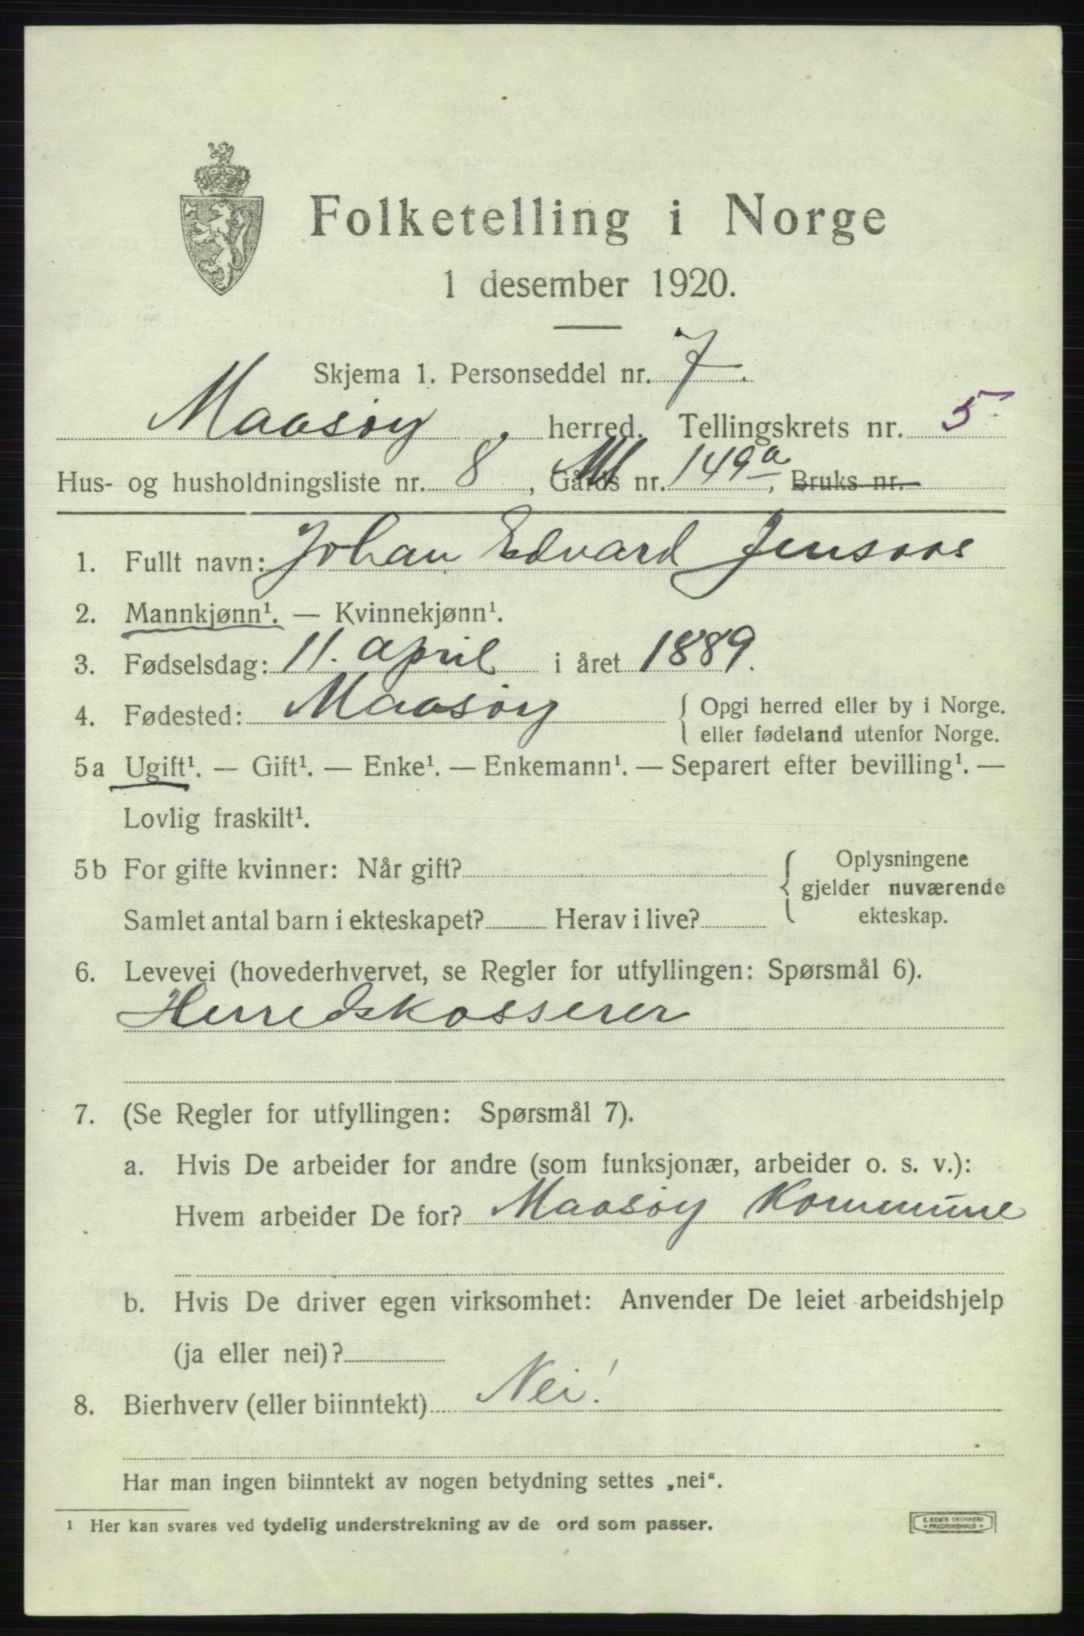 Folketelling i Norge
1 desember 1920.
Skjema 1. Personseddel nr. 7.
Maasøy, herred. Tellingskrets nr. 5
Hus- og husholdningsliste nr. 8, Gårds nr. 149a, Bruks nr.
1. Fullt navn: Johan Edvard
2. Mannkjønn¹. — Kvinnekjønn¹.
3. Fødselsdag: 11. april i året 1889.
4. Fødested: Maasøy { Opgi herred eller by i Norge.
eller fødeland utenfor Norge.
5a Ugift¹. — Gift¹. — Enke¹. — Enkemann¹. — Separert efter bevilling¹. —
Lovlig fraskilt¹.
5b For gifte kvinner: Når gift?
Samlet antal barn i ekteskapet? Herav i live?
{ Oplysningene
gjelder nuværende
ekteskap.
6. Levevei (hovederhvervet, se Regler for utfyllingen: Spørsmål 6).
Herredskasserer
7. (Se Regler for utfyllingen: Spørsmål 7).
a. Hvis De arbeider for andre (som funksjonær, arbeider o. s. v.):
Hvem arbeider De for? Maasøy Kommune
b. Hvis De driver egen virksomhet: Anvender De leiet arbeidshjelp
(ja eller nei)?
8. Bierhverv (eller biinntekt) Nei!
Har man ingen biinntekt av nogen betydning settes „nei“.
¹ Her kan svares ved tydelig understrekning av de ord som passer.